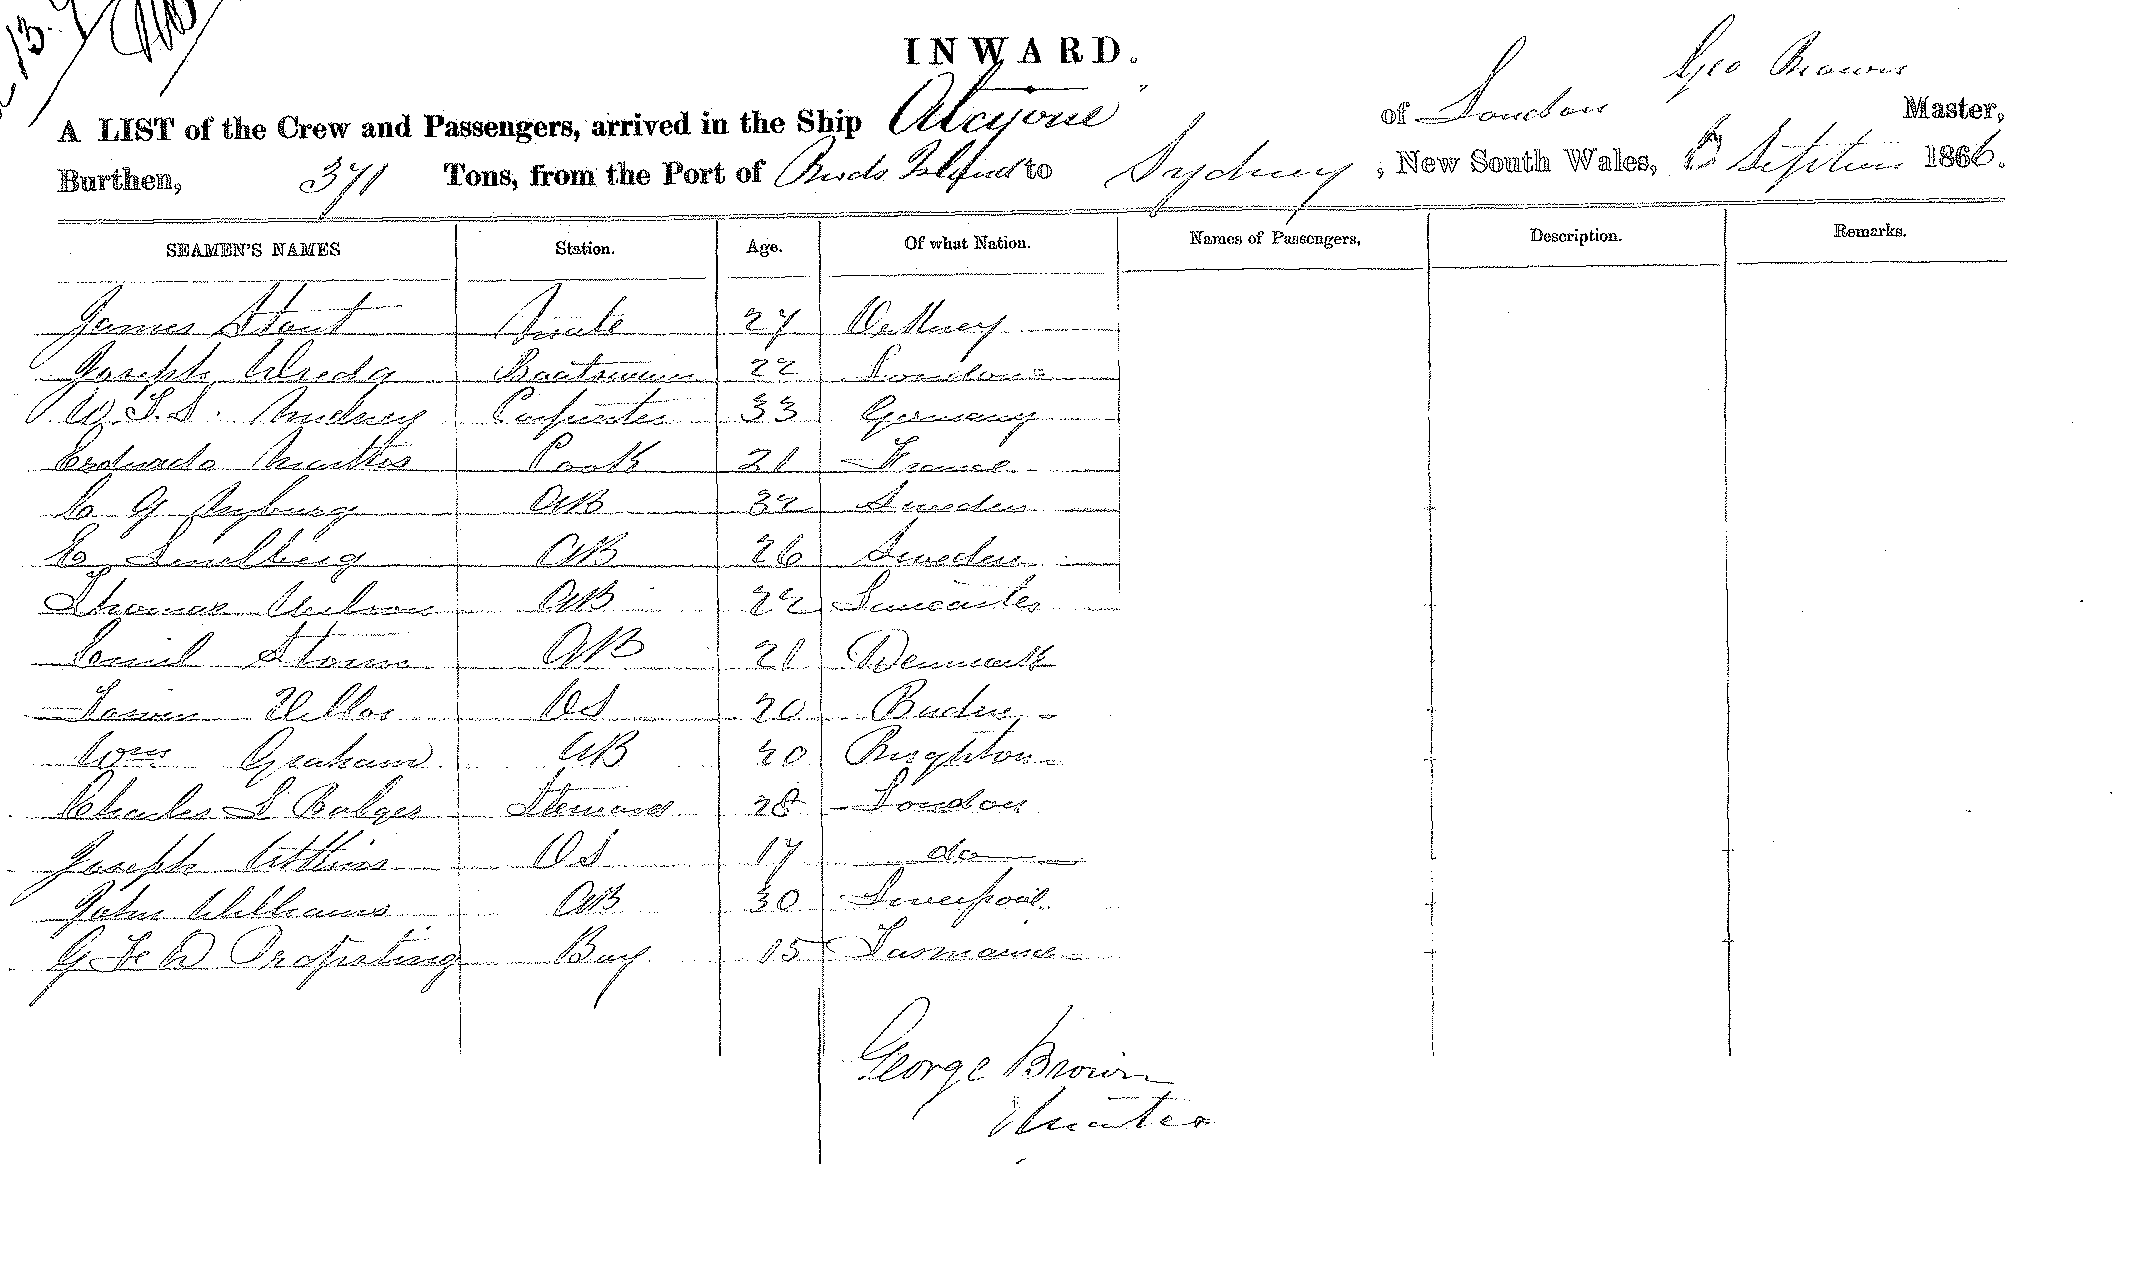 13.
INWARD.
Geo Brown
A LIST of the Crew and Passengers, arrived in the Ship "Alcyone" of London Master,
Burthen, 371 Tons, from the Port of Birds Island to Sydney, New South Wales, Septem 1866.
SEAMEN'S NAMES Station. Age. Of what Nation. Names of Passengers, Description. Remarks.
James Stout Mate 27 Orkney
Joseph Boatswain 22 London
W. Carpenter 33 Germany
Cook 21 France
C G Nyburg AB 32 Sweden
AB 26 Sweden
Thomas AB 22 Lancaster
Emil Storm AB 21 Denmark
OS 20 Baden
Wm Graham AB 20 Brighton
Charles S Bolger Steward 28 London
Joseph Atkins OS 17 do
John Williams AB 30 Liverpool
G Propsting Boy 15 Tasmania
George Brown
Master